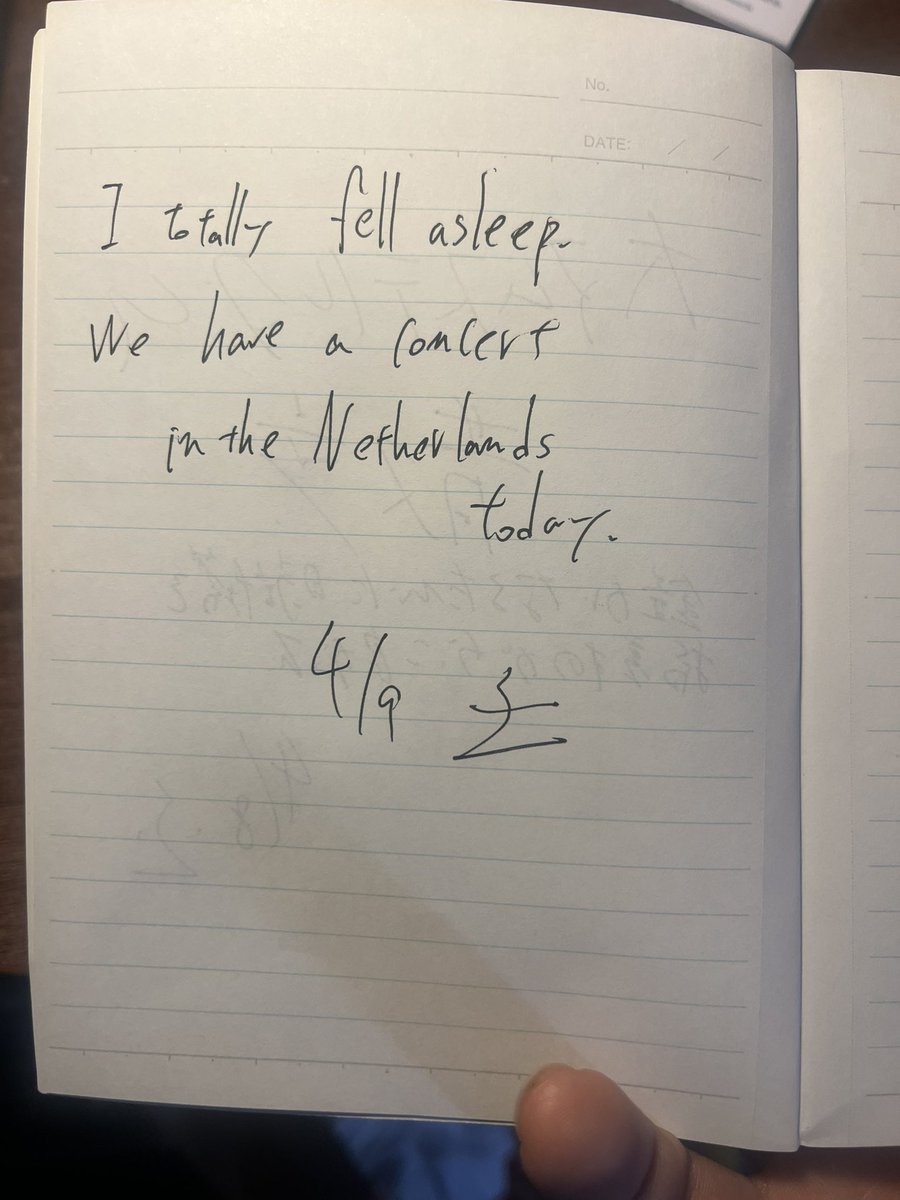 No.
DATE: / /
I totally fell asleep.
We have a concert
in the Netherlands
today.
4/9